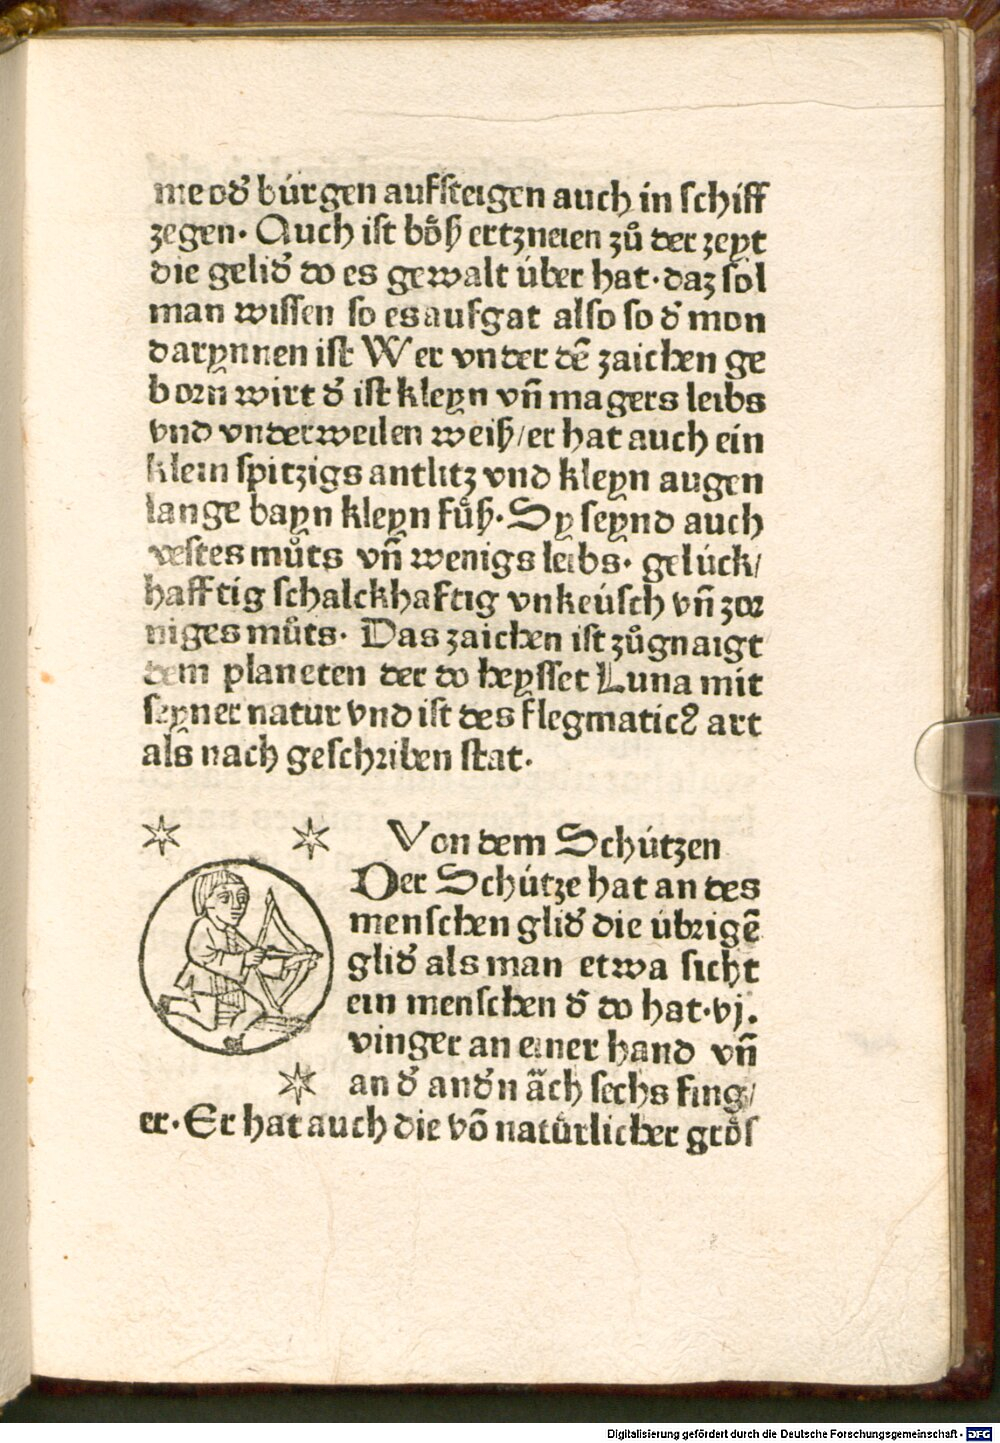 me od' búrgen aufsteigen auch in schiff
zegen. Auch ist bo̊ß ertzneien zů der zeyt
die gelid' do es gewalt über hat. daz sol
man wissen so es aufgat also so d' mon
darynnen ist Wer vnder dē zaichen ge
born̄ wirt d' ist kleyn vn̄ magers leibs
vnd vnderweilen weiß/er hat auch ein
klein spitzigs antlitz vnd kleyn augen
lange bayn kleyn fůß. Sy seynd auch
vestes můts vn̄ wenigs leibs. gelúck/
hafftig schalckhaftig vnkeúsch vn̄ zor
niges můts. Das zaichen ist zůgnaigt
dem planeten der do heysset Luna mit
seyner natur vnd ist des flegmaticꝰ art
als nach geschriben stat.
Von dem Schútzen
Der Schútze hat an des
menschen glid' die úbrigē
glid' als man etwa sicht
ein menschen d' do hat. vj.
vinger an einer hand vn̄
an d' and'n āch sechs fing/
er. Er hat auch die vō natůrlicher grȯ̊s
Digitalisierung gefördert durch die Deutsche Forschungsgemeinschaft - DFG